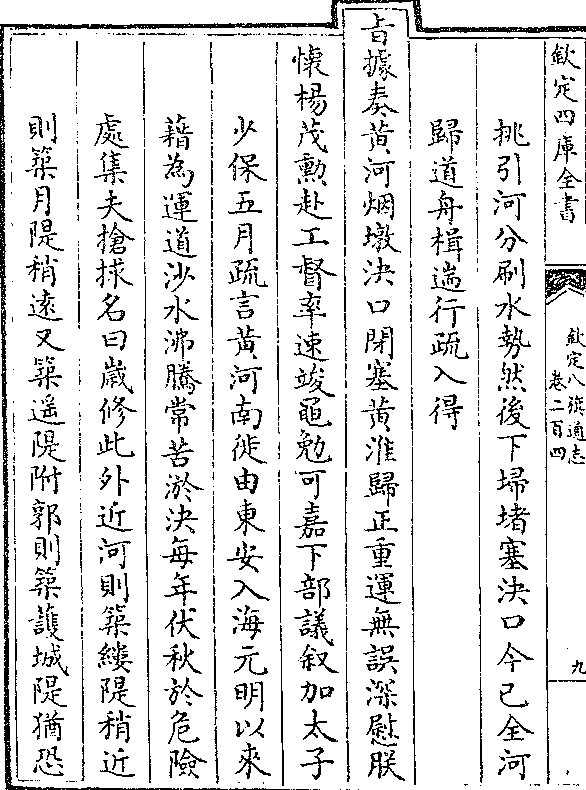 欽定四庫全書
欽定八旗通志
卷二百四
九
挑引河分刷水勢然後下埽堵塞決口今已全河
歸道舟楫遄行疏入得
㫖據奏黄河烟墩決口閉塞黄淮歸正重運無誤深慰朕
懷楊茂勲赴工督率速竣黽勉可嘉下部議叙加太子
少保五月疏言黄河南徙由東安入海元明以來
藉為運道沙水沸騰常苦淤決每年伏秋於危險
處集夫搶捄名曰歲修此外近河則築縷隄稍近
則築月隄稍逺又築遥隄附郭則築護城隄猶恐